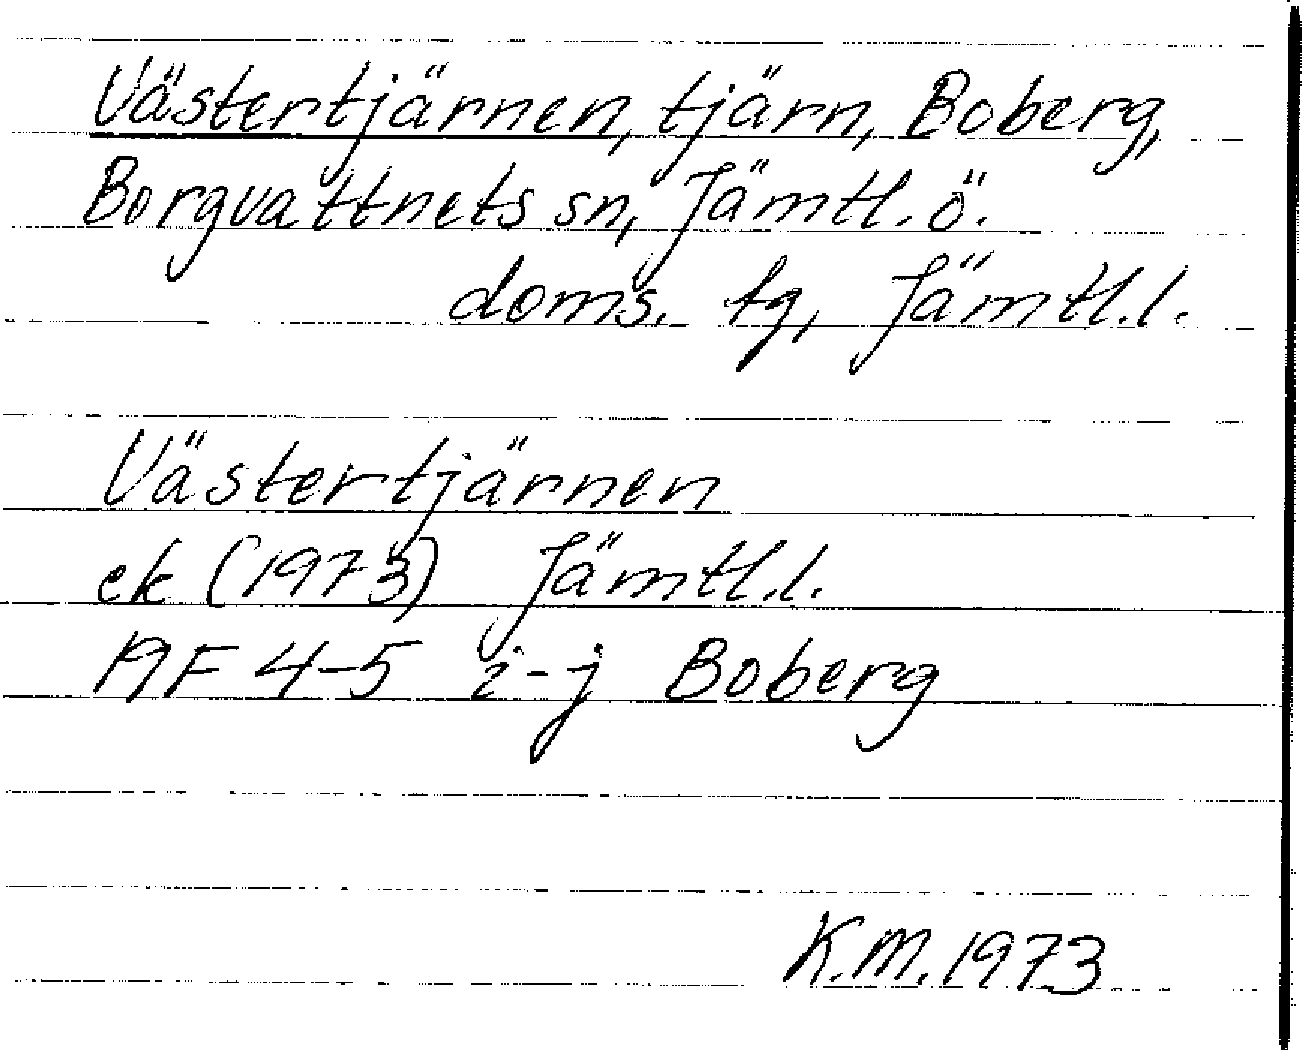 Västertjärnen, tjärn, Boberg,
Borgvattnets sn, Jämtl. ö.
doms. tg, Jämtl.l.
Västertjärnen
ek (1973) Jämtl.l.
19F 4-5 i-j Boberg
K.M. 1973